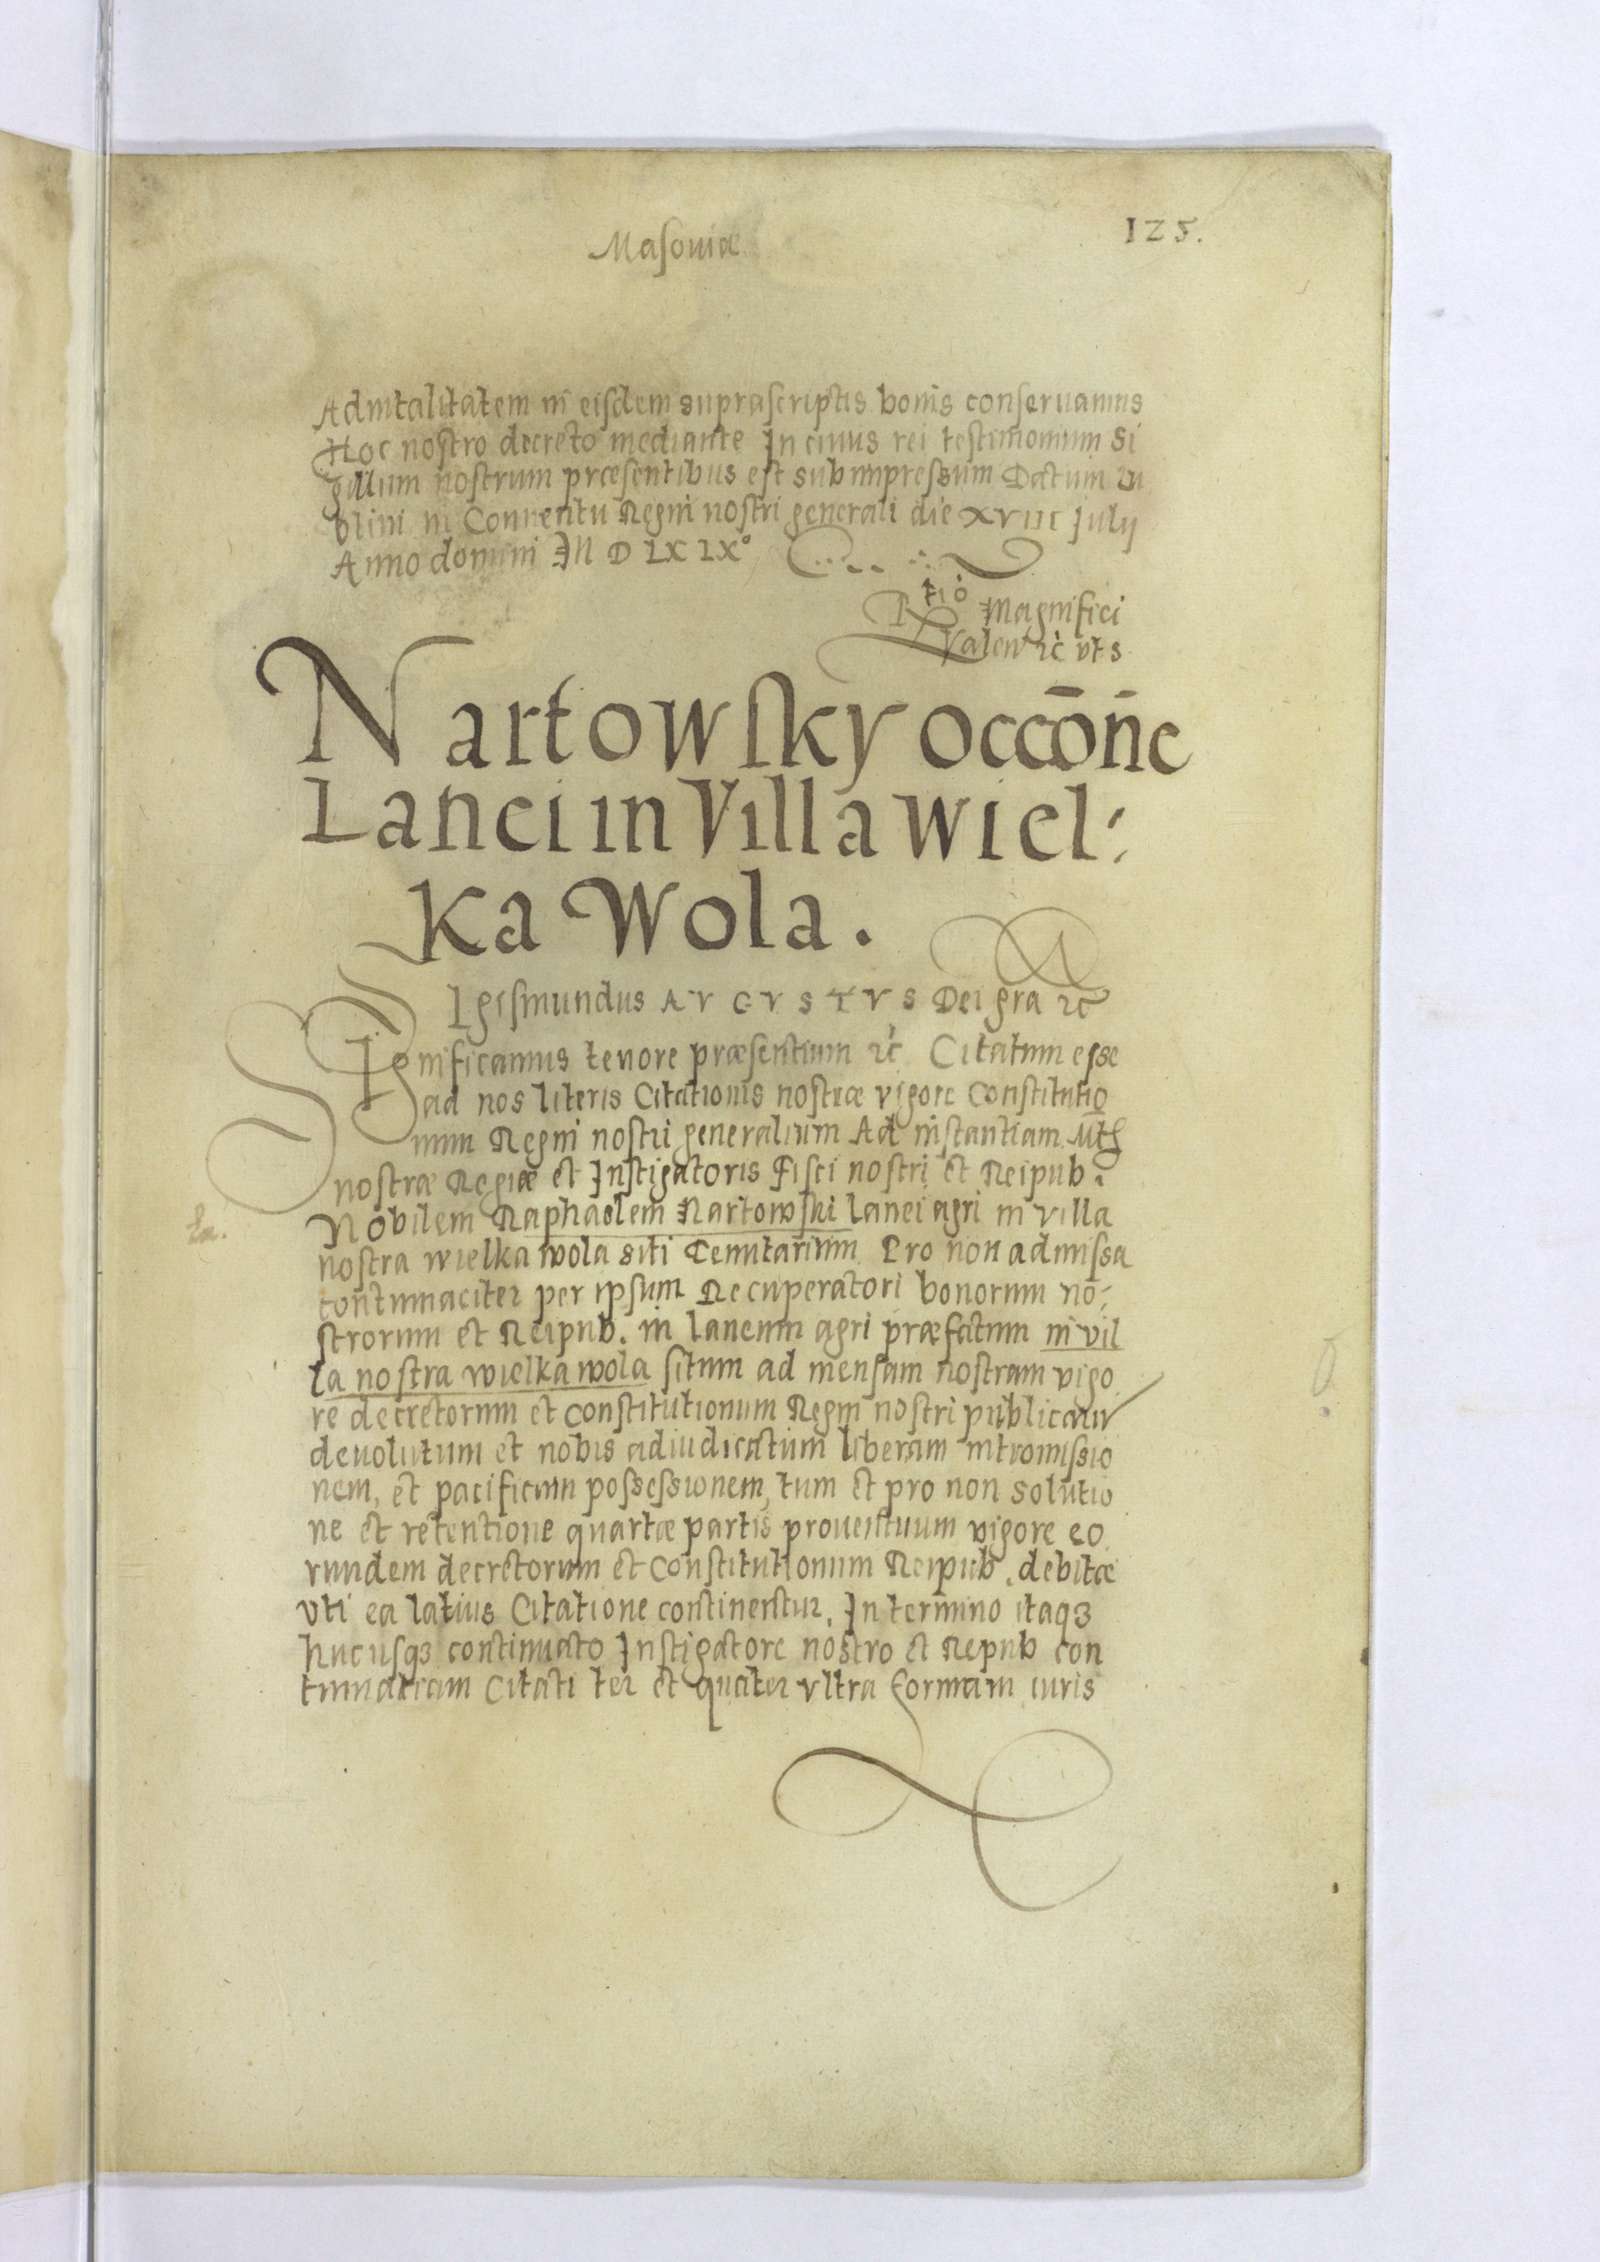 Masoviæ
125.
Aduitalitatem in eisdem suprascriptis bonis conseruamus
Hoc nostro decreto mediante In cuius rei testimonium Si
gillum nostrum præsentibus est subimpressum Datum Lu
blini in Conuentu Regni nostri generali die XVIII Julij
Anno domini M D LX IX°
Rtio Magnifici
Valen ꝛc vt s
Nartowsky occōn̄e
Lanei in Villa Wiel:
ka Wola.
SIgismundus AVGVSTVS Dei gra ꝛc
Significamus tenore præsentium ꝛc Citatum esse
ad nos literis Citationis nostræ vigore Constitutio
num Regni nostri generalium Ad instantiam Mtis
nostræ Regiæ et Instigatoris Fisci nostri et Reipub.
Nobilem Raphaelem Nartowski lanei agri in villa
nostra wielka wola siti Tenutarium Pro non admissa
contumaciter per ipsum Recuperatori bonorum no:
strorum et Reipub. in laneum agri præfatum in vil
la nostra wielka wola situm ad mensam nostram vigo
re decretorum et constitutionum Regni nostri publicarum
deuolutum et nobis adiudicatum liberam intromissio
nem, et pacificam possessionem, tum et pro non solutio
ne et retentione quartæ partis prouentuum vigore eo
rundem decretorum et Constitutionum Reipub. debitæ
vti ea latius Citatione continentur. In termino itaqꝫ
hucusqꝫ continuato Instigatore nostro et Reipub con
tumatiam Citati ter et quater vltra formam iuris